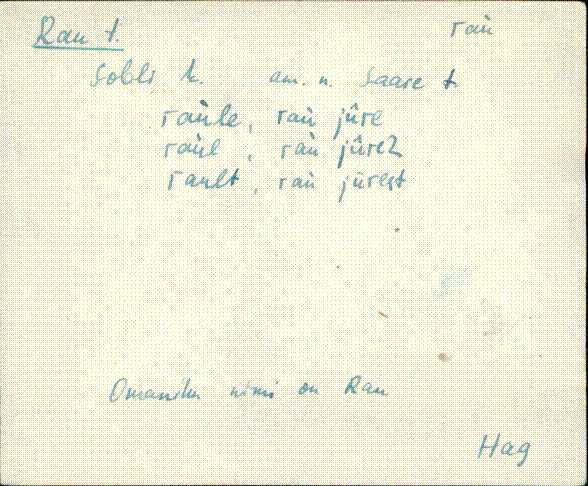 Rau t. raù
Sobli k. am. n. Saare t.
raùle, raù jûre
raùl, raù jûrez
rault, raù jûrest
Omaniku nimi on Rau
Hag